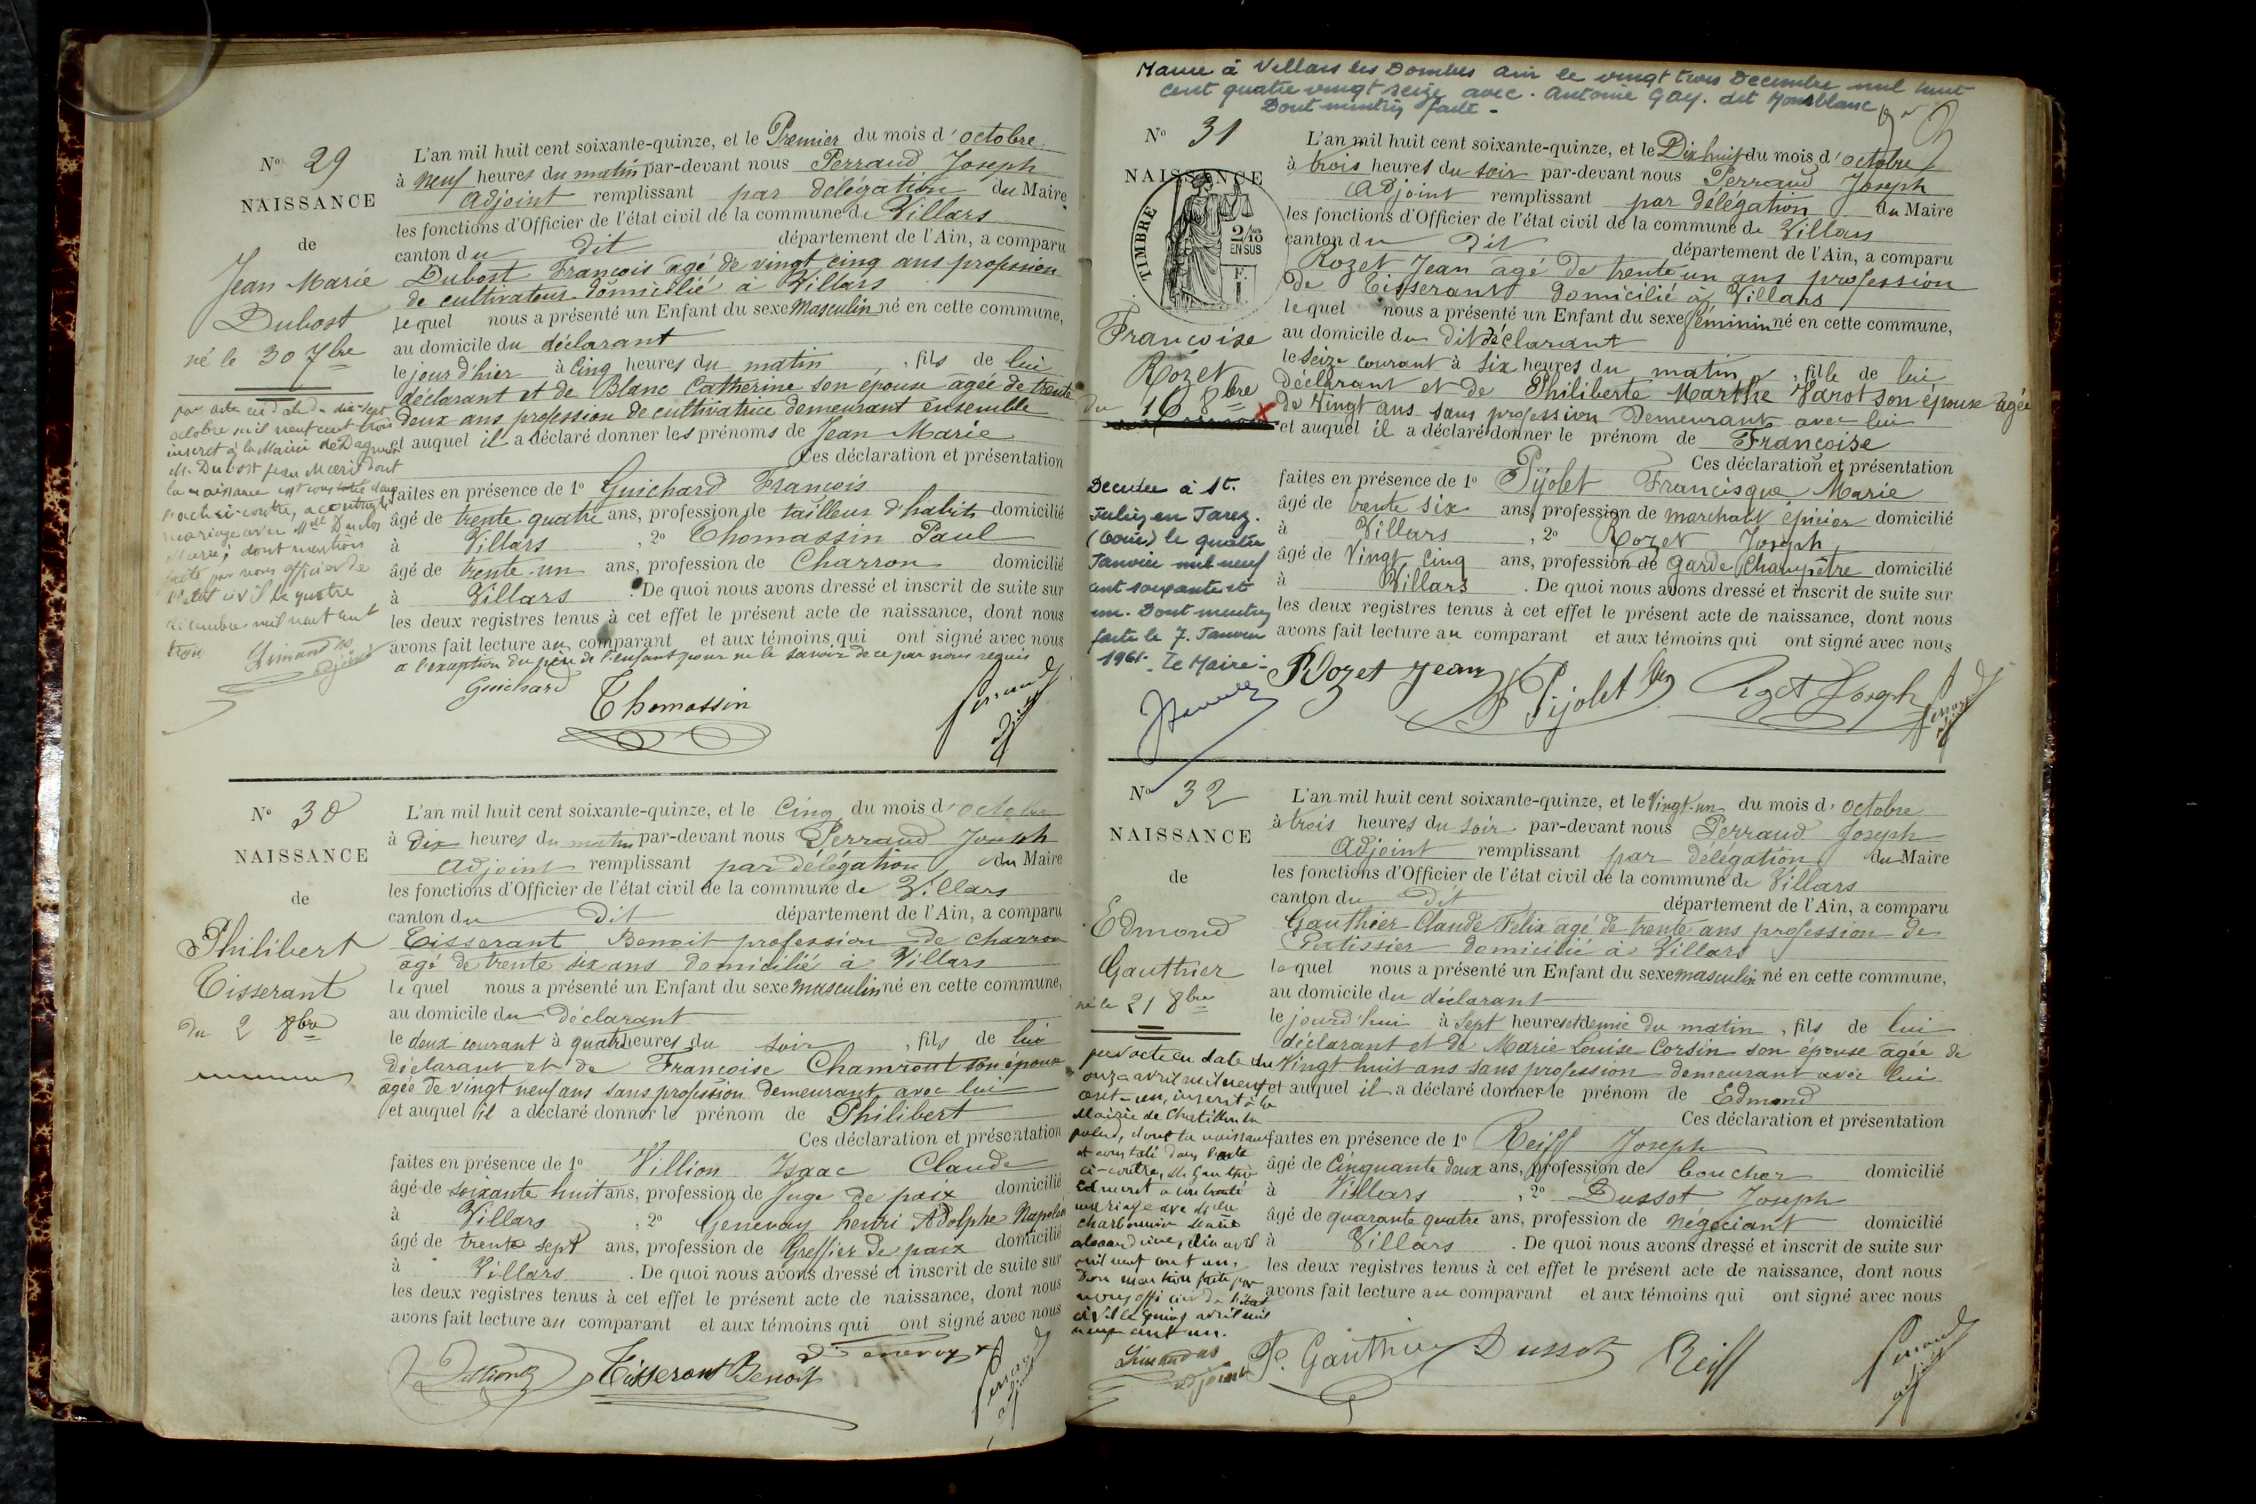 N° 29
NAISSANCE
de
Jean Marie
Dubost
né le 30 7bre
par acte en date du dix-sept
octobre mil neuf cent trois
inscrit à la Mairie de Dagneux
M. Dubost Jean Marie dont
la naissance est constatée dans
l'acte ci-contre, a contracté
mariage avec Mlle Duclos
Marie, dont mention
faite par nous officier de
l'état civil le quatre
décembre mil neuf cent
trois
Limandas
adjoint
L'an mil huit cent soixante-quinze, et le Premier du mois d'octobre
à neuf heures du matin par-devant nous Perraud Joseph
Adjoint remplissant par délégation du Maire
les fonctions d'Officier de l'état civil de la commune de Villars
canton du dit département de l'Ain, a comparu
Dubost François âgé de vingt cinq ans profession
de cultivateur domicilié à Villars
lequel nous a présenté un Enfant du sexe Masculin né en cette commune,
au domicile du déclarant
le jour d'hier à Cinq heures du matin, fils de lui
déclarant et de Blanc Catherine son épouse âgée de trente
deux ans profession de cultivatrice demeurant ensemble
et auquel il a déclaré donner les prénoms de Jean Marie
Ces déclaration et présentation
faites en présence de 1° Guichard François
âgé de trente quatre ans, profession de tailleur d'habits domicilié
à Villars, 2° Thomassin Paul
âgé de trente-un ans, profession de Charron domicilié
à Villars. De quoi nous avons dressé et inscrit de suite sur
les deux registres tenus à cet effet le présent acte de naissance, dont nous
avons fait lecture au comparant et aux témoins qui ont signé avec nous
a l'exception du père de l'enfant pour ne le savoir de ce par nous requis
Guichard
Thomassin
Perraud
adj
N° 30
NAISSANCE
de
Philibert
Tisserant
du 2 8bre
L'an mil huit cent soixante-quinze, et le Cinq du mois d'octobre
à Dix heures du matin par-devant nous Perraud Joseph
Adjoint remplissant par délégation du Maire
les fonctions d'Officier de l'état civil de la commune de Villars
canton du Dit département de l'Ain, a comparu
Tisserant Benoit profession de charron
âgé de trente six ans domicilié à Villars
lequel nous a présenté un Enfant du sexe masculin né en cette commune,
au domicile du Déclarant
le deux courant à quatre heures du soir, fils de lui
déclarant et de Françoise Chamront son épouse
âgée de vingt neuf ans sans profession demeurant avec lui
et auquel il a déclaré donner le prénom de Philibert
Ces déclaration et présentation
faites en présence de 1° Villion Isaac Claude
âgé de soixante huit ans, profession de Juge de paix domicilié
à Villars, 2° Genevay henri Adolphe Napoléon
âgé de trente sept ans, profession de Greffier de paix domicilié
à Villars. De quoi nous avons dressé et inscrit de suite sur
les deux registres tenus à cet effet le présent acte de naissance, dont nous
avons fait lecture au comparant et aux témoins qui ont signé avec nous
Villion Tisserant Benoît Genevay
Perraud
adj
Marie à Villars les Dombes Ain le vingt trois Decembre mil huit
cent quatre vingt seize avec. Antoine GAY. dit Monblanc
Dont mention faite -
N° 31
NAISSANCE
TIMBRE
2/10
EN SUS
Françoise
Rozet
du 16 8bre
Decedée à St.
Julien en Jarez.
(Loire) le quatre
Janvier mil neuf
cent soixante et
un. Dont mention
faite le 7. Janvier
1961- Le Maire:-
L'an mil huit cent soixante-quinze, et le Dix huit du mois d'octobre
à trois heures du soir par-devant nous Perraud Joseph
Adjoint remplissant par délégation du Maire
les fonctions d'Officier de l'état civil de la commune de Villars
canton du Dit département de l'Ain, a comparu
Rozet Jean âgé de trente un ans profession
de Tisserant domicilié à Villars
lequel nous a présenté un Enfant du sexe féminin né en cette commune,
au domicile du Dit déclarant
le Seize courant à six heures du matin, fille de lui
déclarant et de Philiberte Marthe Varot son épouse âgée
de vingt ans sans profession Demeurant avec lui
et auquel il a déclaré donner le prénom de Françoise
Ces déclaration et présentation
faites en présence de 1° Pijolet Francisque Marie
âgé de trente six ans, profession de marchand épicier domicilié
à Villars, 2° Rozet Joseph
âgé de Vingt Cinq ans, profession de Garde Champêtre domicilié
à Villars. De quoi nous avons dressé et inscrit de suite sur
les deux registres tenus à cet effet le présent acte de naissance, dont nous
avons fait lecture au comparant et aux témoins qui ont signé avec nous
Rozet Jean Pijolet Rozet Joseph
Perraud
N° 32
NAISSANCE
de
Edmond
Gauthier
né le 21 8bre
par acte en date du
onze avril mil neuf
cent-un, inscrit à la
Mairie de Chatillon la
palud, dont la naissance
est constatée dans l'acte
ci-contre, M. Gauthier
Edmond a contracté
mariage avec Mlle
Charbonnier Jeanne
alexandrine, dix avril
mil neuf cent un,
Dont mention faite par
nous officier de l'état
civil le quinze avril mil
neuf cent un.
Limandas
adjoint
L'an mil huit cent soixante-quinze, et le Vingt-un du mois d'octobre
à trois heures du soir par-devant nous Perraud Joseph
Adjoint remplissant par délégation du Maire
les fonctions d'Officier de l'état civil de la commune de Villars
canton du dit département de l'Ain, a comparu
Gauthier Claude Felix âgé de trente ans profession de
Patissier domicilié à Villars
lequel nous a présenté un Enfant du sexe masculin né en cette commune,
au domicile du déclarant
le jourd'hui à Sept heures et demie du matin, fils de lui
déclarant et de Marie Louise Corsin son épouse âgée de
Vingt huit ans sans profession demeurant avec lui
et auquel il a déclaré donner le prénom de Edmond
Ces déclaration et présentation
faites en présence de 1° Reiff Joseph
âgé de Cinquante deux ans, profession de boucher domicilié
à Villars, 2° Dussot Joseph
âgé de quarante quatre ans, profession de négociant domicilié
à Villars. De quoi nous avons dressé et inscrit de suite sur
les deux registres tenus à cet effet le présent acte de naissance, dont nous
avons fait lecture au comparant et aux témoins qui ont signé avec nous
F. Gauthier Dussot Reiff
Perraud
adj